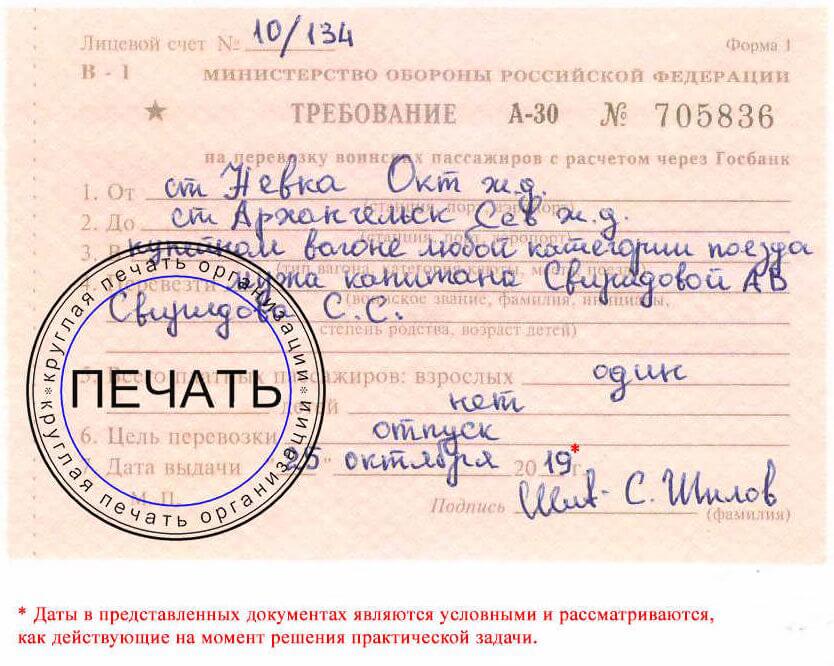 Лицевой счет № 10/134
Форма 1
В - 1 МИНИСТЕРСТВО ОБОРОНЫ РОССИЙСКОЙ ФЕДЕРАЦИИ
ТРЕБОВАНИЕ А-30 № 705836
на перевозку воинских пассажиров с расчетом через Госбанк
1. От ст Невка Окт ж.д.
(станция, порт, аэропорт)
2. До ст Архангельск Сев ж.д.
(станция, порт, аэропорт)
3. В купейном вагоне любой категории поезда
(тип вагона, категория каюты,
4. Перевезти мужа капитана Свиридовой АВ
(воинское звание, фамилия, инициалы,
Свиридова С.С.
степень родства, возраст детей)
5. Всего платных пассажиров: взрослых один
детей нет
6. Цель перевозки отпуск
7. Дата выдачи "25" октября 2019* г.
М. П.
Подпись С. Шилов
(фамилия)
круглая печать организации * круглая печать организации *
ПЕЧАТЬ
* Даты в представленных документах являются условными и рассматриваются,
как действующие на момент решения практической задачи.